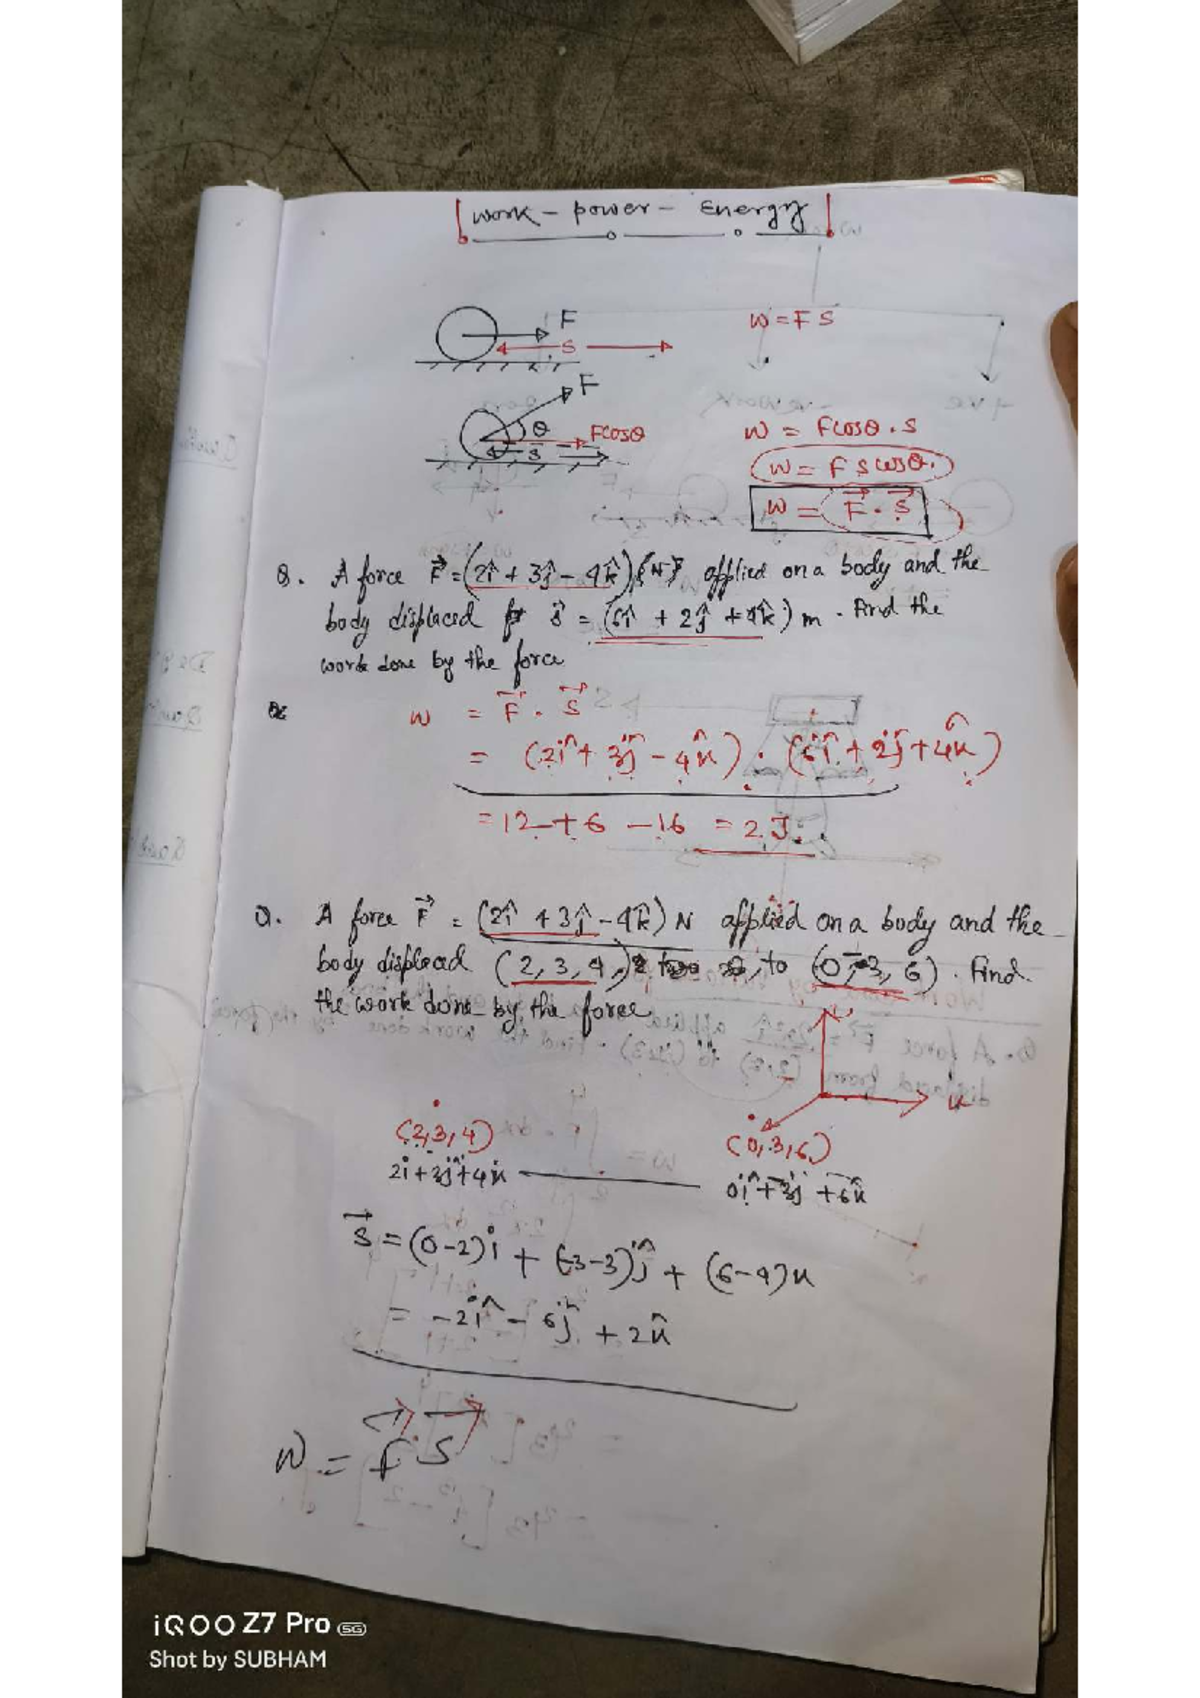 Work - power - Energy
F
S
W = F S
F
θ
Fcosθ
S
W = Fcosθ . S
W = F S cosθ.
W = F⃗ . S⃗
Q. A force F⃗ = (2î + 3ĵ - 4k̂) (N) applied on a body and the
body displaced S⃗ = (6î + 2ĵ + 4k̂) m. Find the
work done by the force
W = F⃗ . S⃗
= (2î + 3ĵ - 4k̂) . (6î + 2ĵ + 4k̂)
= 12 + 6 - 16 = 2 J.
Q. A force F⃗ = (2î + 3ĵ - 4k̂) N applied on a body and the
body displaced (2, 3, 4) to (0, -3, 6). Find
the work done by the force
(2,3,4)
(0,3,6)
2i + 3ĵ + 4k
0î + 3ĵ + 6k̂
S⃗ = (0-2)i + (-3-3)ĵ + (6-4)k
= -2î - 6ĵ + 2k̂
W = F S
iQOO Z7 Pro 5G
Shot by SUBHAM